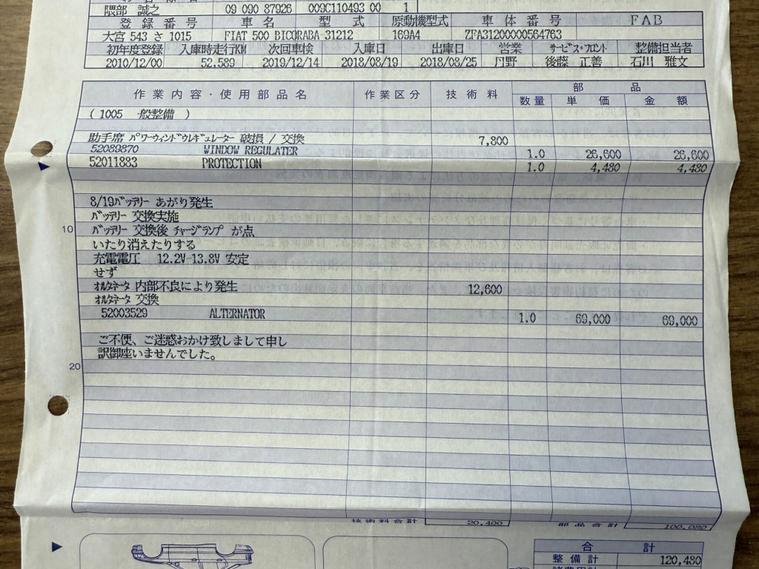 隈部 誠之 09 090 87926 009C110493 00 1
登録番号 車名 型式 原動機型式 車体番号 FAB
大宮 543 さ 1015 FIAT 500 BICORABA 31212 169A4 ZFA31200000564763
初年度登録 入庫時走行KM 次回車検 入庫日 出庫日 営業 サービス・フロント 整備担当者
2010/12/00 52,589 2019/12/14 2018/08/19 2018/08/25 丹野 後藤 正善 石川 雅文
作業内容・使用部品名 作業区分 技術料 部品
数量 単価 金額
(1005 一般整備 )
助手席 パワーウィンドウレギュレーター 破損 / 交換 7,800
52089870 WINDOW REGULATER 1.0 26,600 26,600
52011883 PROTECTION 1.0 4,480 4,480
8/19バッテリー あがり発生
バッテリー 交換実施
10 バッテリー 交換後 チャージランプ が点
いたり消えたりする
充電電圧 12.2V-13.8V 安定
せず
オルタネータ 内部不良により発生 12,600
オルタネータ 交換
52003529 ALTERNATOR 1.0 69,000 69,000
ご不便、ご迷惑おかけ致しまして申し
訳御座いませんでした。
20
技術料合計 20,400 部品合計 100,080
合計
整備計 120,480